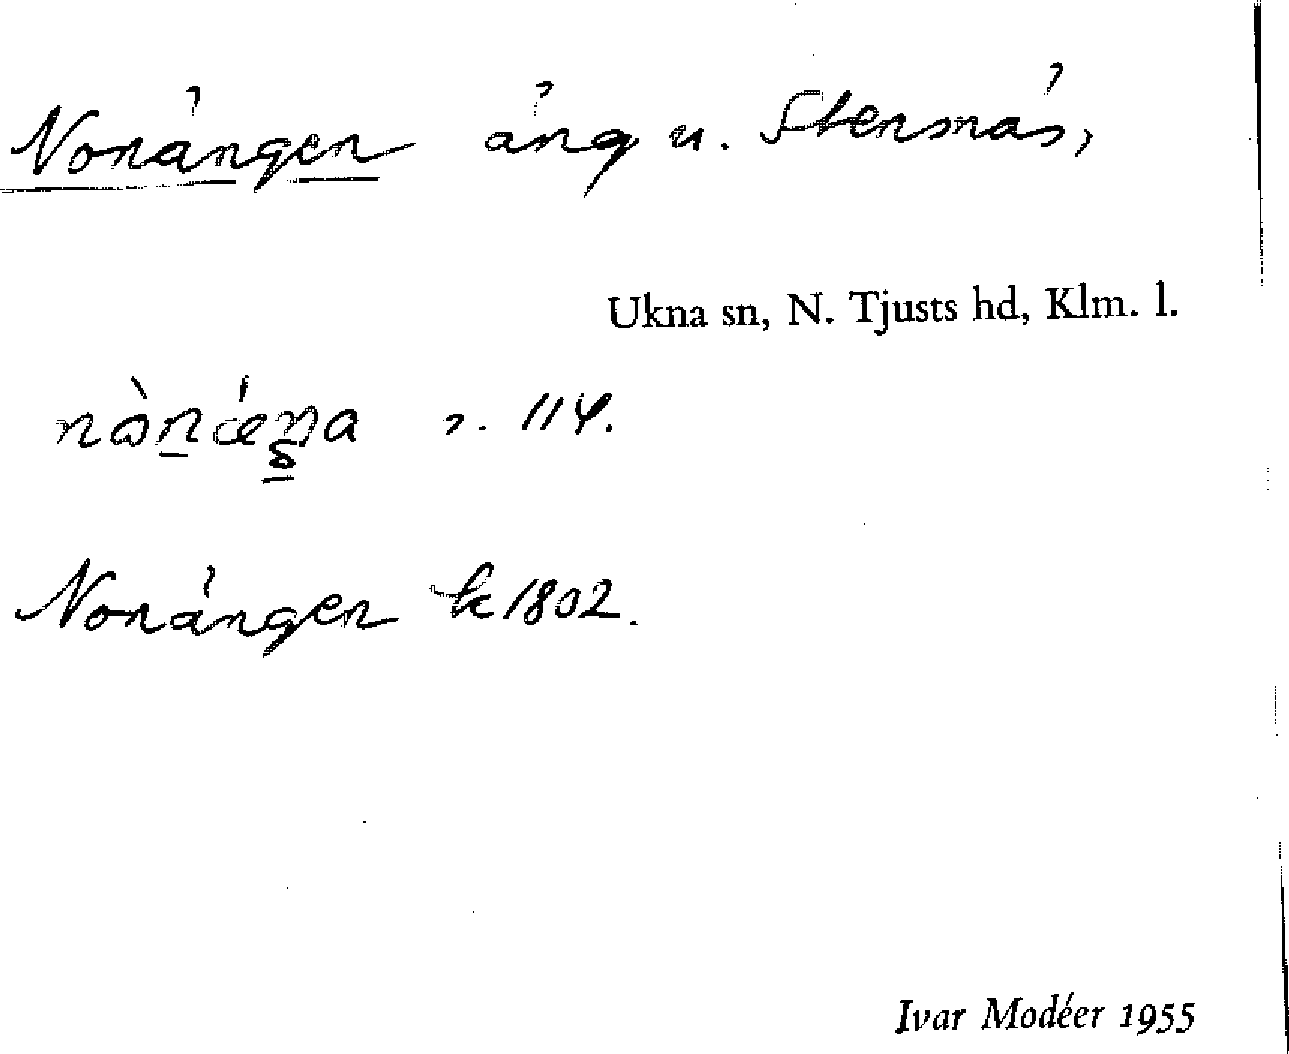 Norängen äng u. Stensnäs,
Ukna sn, N. Tjusts hd, Klm. l.
114.
Norängen k 1802.
Ivar Modéer 1955